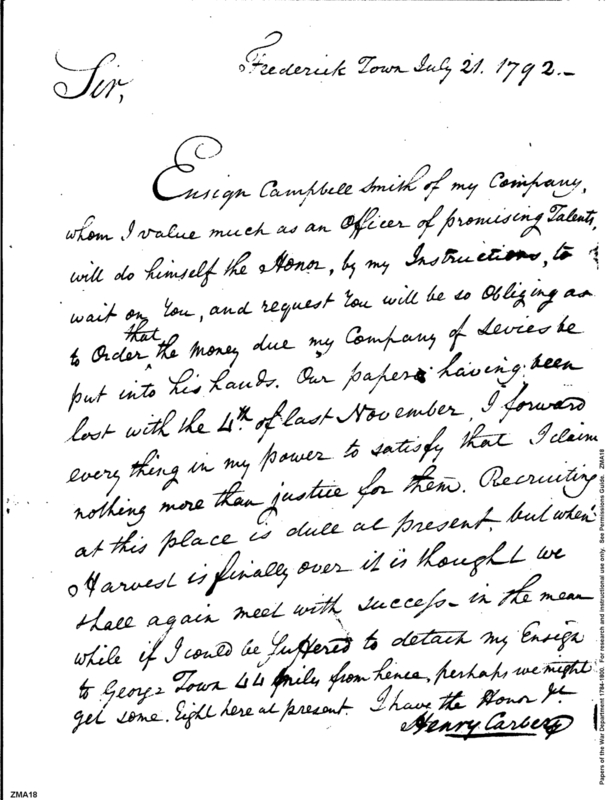 Frederick Town July 21. 1792.-
Sir,
Ensign Campbell Smith of my Company,
whom I value much as an Officer of promising Talents,
will do himself the Honor, by my Instructions, to
wait on You, and request You will be so Obliging as
to Order that the Money due my Company of Levies be
put into his hands. Our papers having been
lost with the 4th of last November, I forward
every thing in my power to satisfy that I claim
nothing more than justice for them. Recruiting
at this place is dull at present but when
Harvest is finally over it is thought we
shall again meet with success - in the mean
while if I could be suffered to detach my Ensign
to George Town 44 Miles from hence, perhaps we might
get some. Eight here at present. I have the Honor &c
Henry Carbery
Papers of the War Department 1784-1800. For research and instructional use only. See Permissions Guide. ZMA18
ZMA18